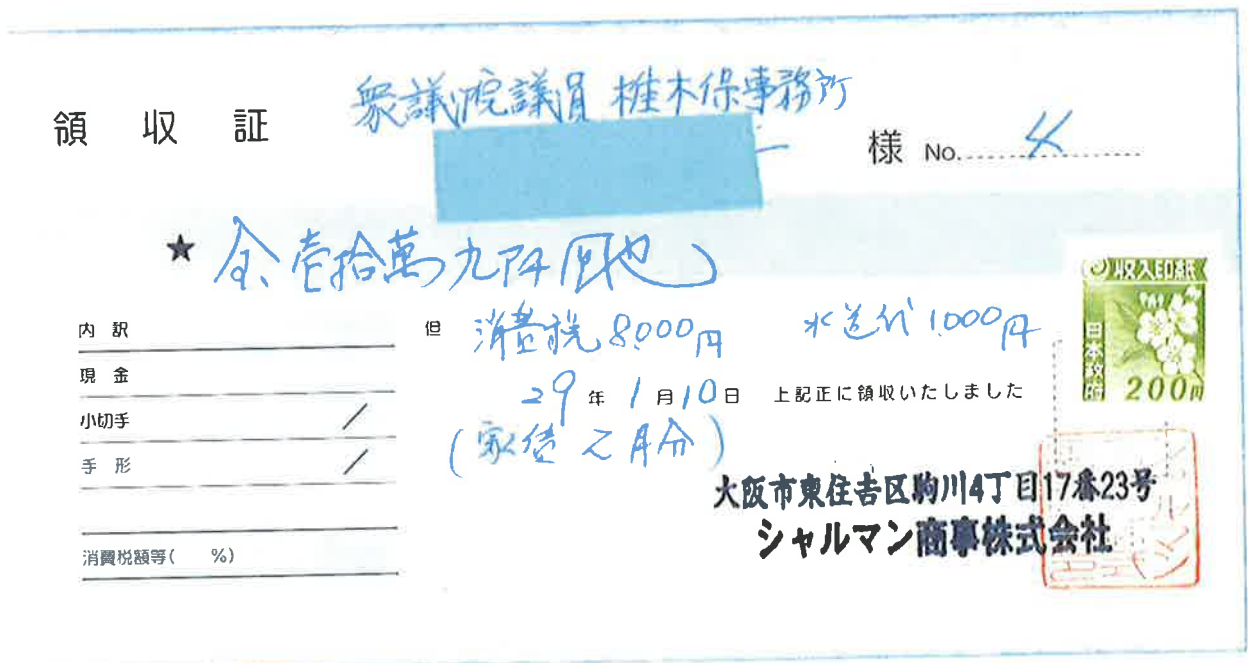 領収証
衆議院議員 椎木保事務所
様 No. 4
★ 金壱拾萬九阡円也
内訳
現金
小切手 /
手形 /
消費税額等( %)
但 消費税 8,000円 水道代 1,000円
29年1月10日 上記正に領収いたしました
(家賃 2月分)
収入印紙
日本政府
200円
大阪市東住吉区駒川4丁目17番23号
シャルマン商事株式会社